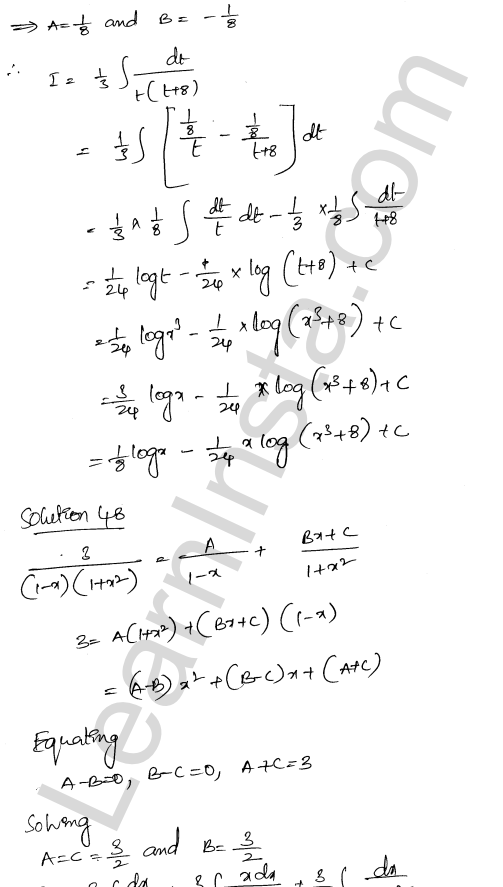 ⇒ A = 1/8 and B = - 1/8
∴ I = 1/3 ∫ dt / t(t+8)
= 1/3 ∫ [ (1/8)/t - (1/8)/(t+8) ] dt
= 1/3 × 1/8 ∫ dt/t dt - 1/3 × 1/8 ∫ dt/(t+8)
= 1/24 log t - 1/24 × log (t+8) + c
= 1/24 log x³ - 1/24 × log (x³+8) + c
= 3/24 log x - 1/24 × log (x³+8) + c
= 1/8 log x - 1/24 × log (x³+8) + c
Solution 48
3 / (1-x)(1+x²) = A / 1-x + Bx+C / 1+x²
3 = A(1+x²) + (Bx+C) (1-x)
= (A-B) x² + (B-C) x + (A+C)
Equating
A-B=0, B-C=0, A+C=3
Solving
A=C= 3/2 and B= 3/2
LearnInsta.com